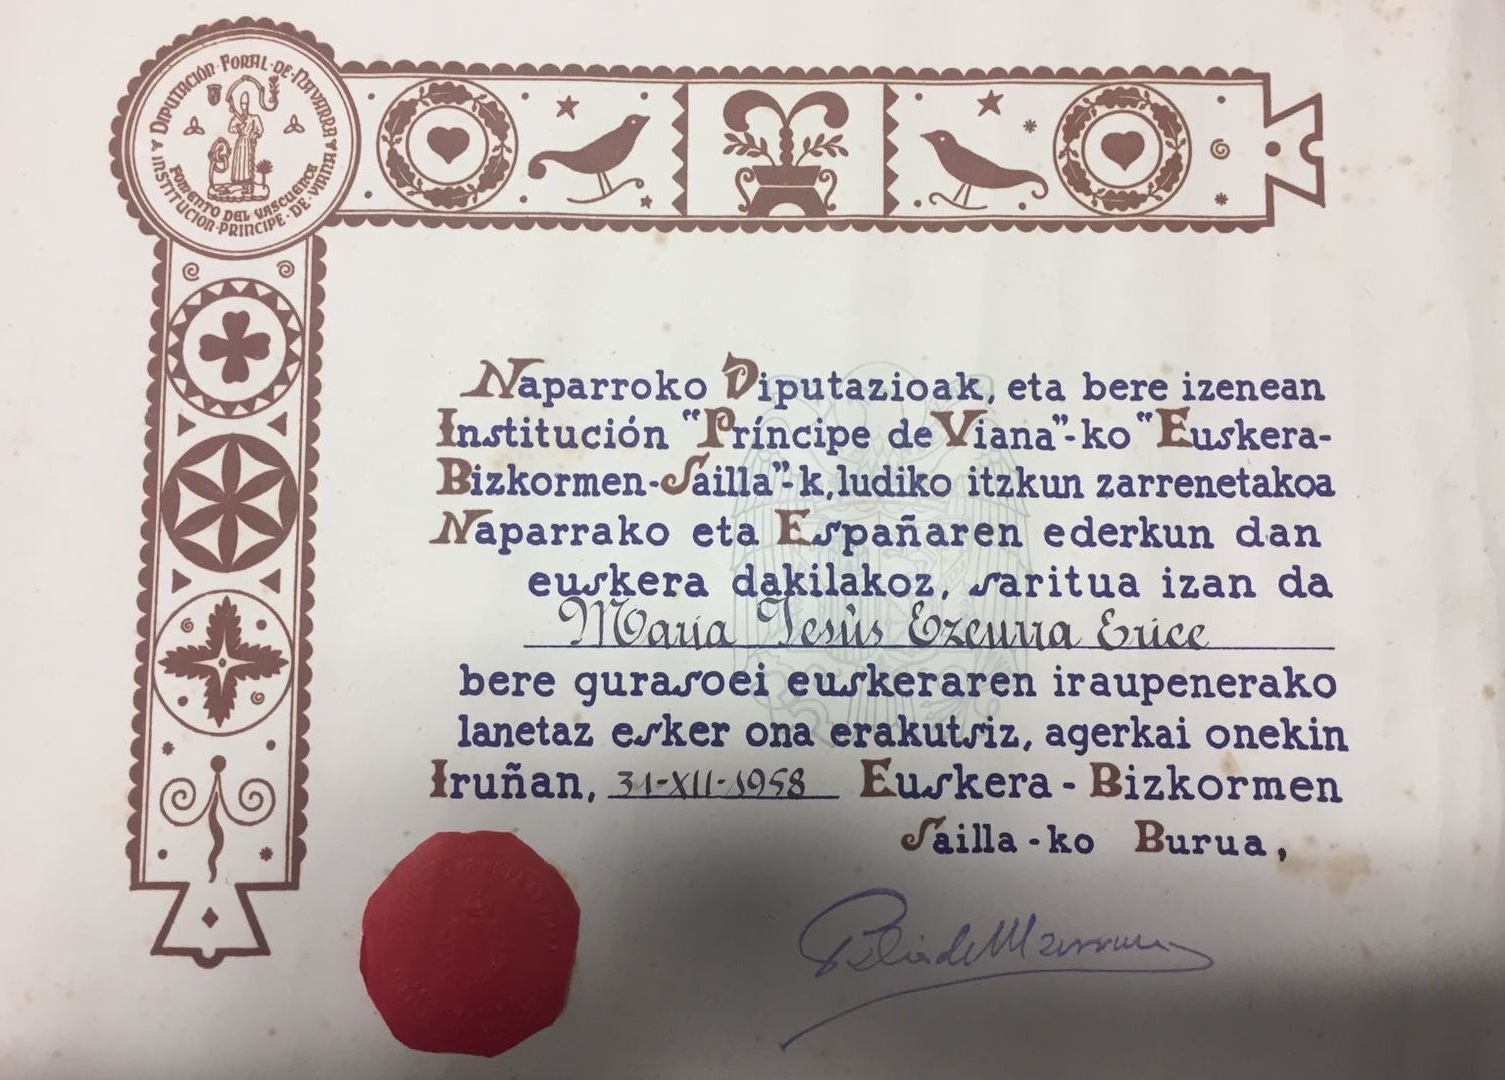 DIPUTACIÓN·FORAL·DE·NAVARRA
INSTITUCIÓN·PRÍNCIPE·DE·VIANA
FOMENTO DEL VASCUENCE
Naparroko Diputazioak, eta bere izenean
Institución "Príncipe de Viana"-ko "Euskera-
Bizkormen-Sailla"-k, ludiko itzkun zarrenetakoa
Naparrako eta Españaren ederkun dan
euskera dakilakoz, saritua izan da
Maria Jesús Ezcurra Erice
bere gurasoei euskeraren iraupenerako
lanetaz esker ona erakutsiz, agerkai onekin
Iruñan, 31-XII-1958 Euskera-Bizkormen
Sailla-ko Burua,